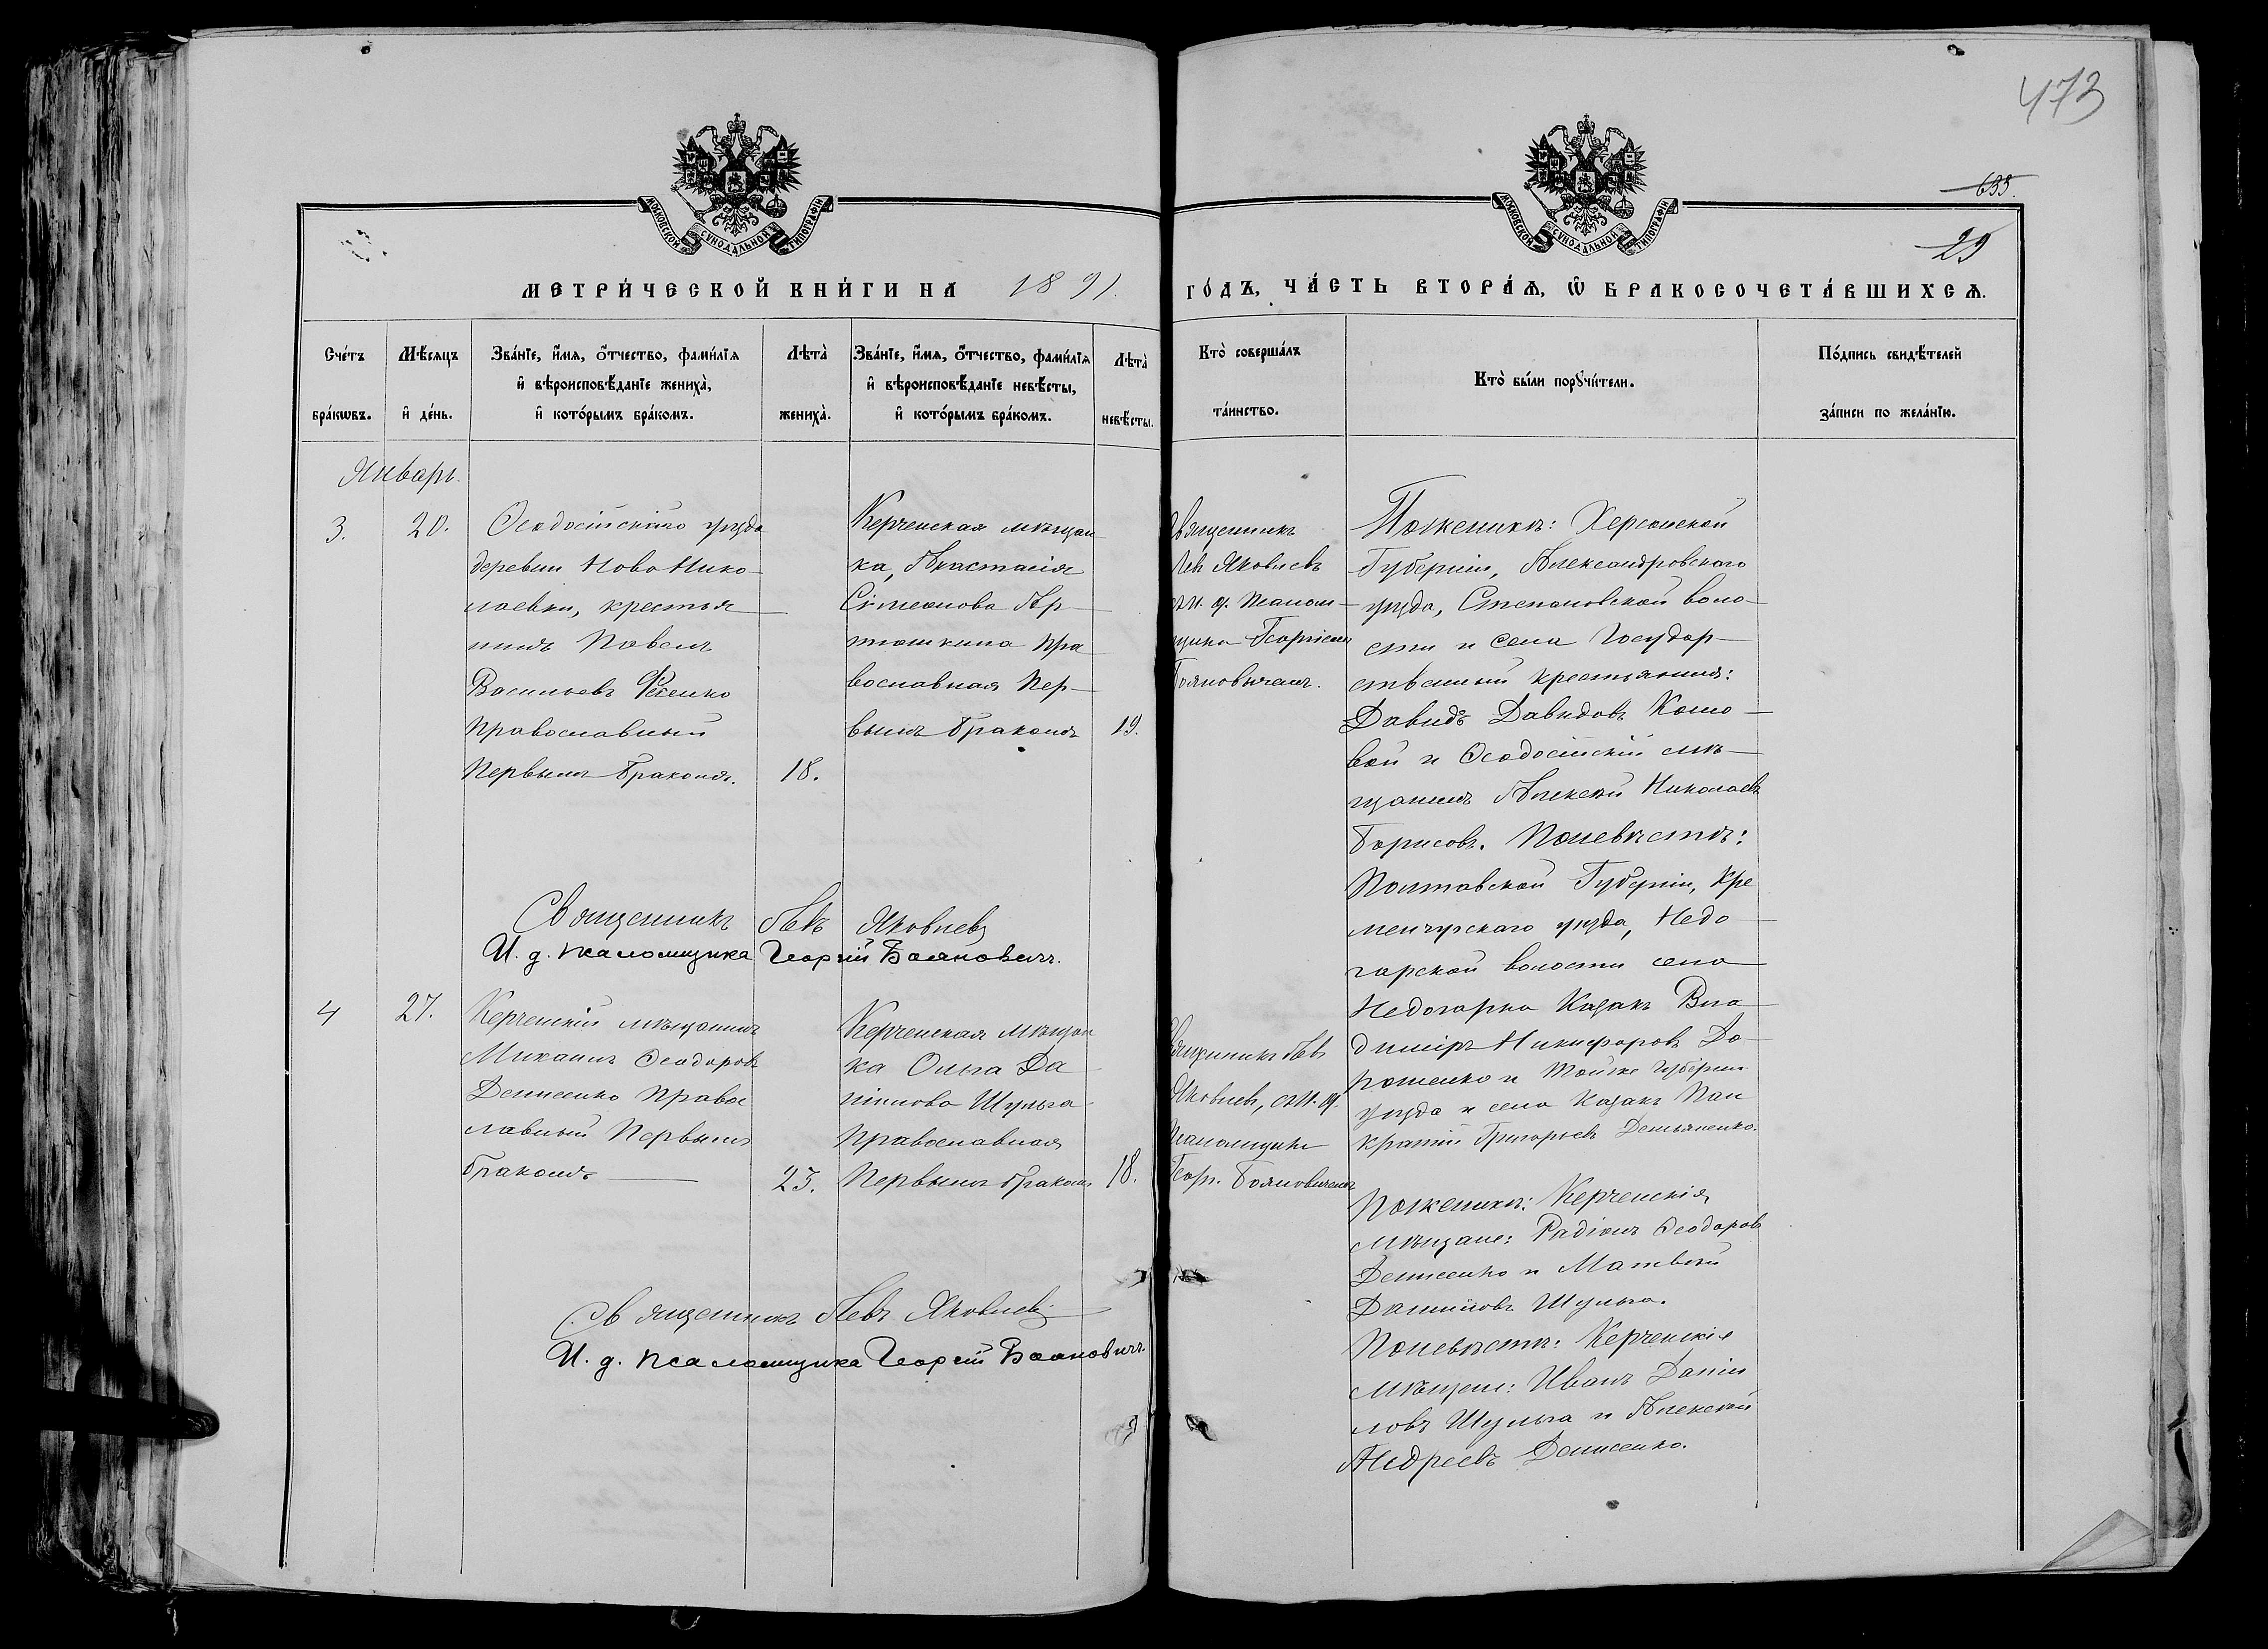 473
635.
29
МОСКОВСКОЙ СѴНОДАЛЬНОЙ ТИПОГРАФІИ
МОСКОВСКОЙ СѴНОДАЛЬНОЙ ТИПОГРАФІИ
МЕТРИ́ЧЕСКОЙ КНИ́ГИ НА 1891.
ГО́ДЪ, ЧА́СТЬ ВТОРА́Ѧ, Ѽ БРАКОСОЧЕТА́ВШИХСѦ.
Сче́тъ
бра́кѡвъ.
Мѣ́сѧцъ
и҆ де́нь.
Зва́нїе, и҆́мѧ, ѻ҆́тчество, фами́лїѧ
и҆ вѣроисповѣ́данїе жениха̀,
и҆ кото́рымъ бра́комъ.
Лѣта̀
жениха̀.
Зва́нїе, и҆́мѧ, ѻ҆́тчество, фами́лїѧ
и҆ вѣроисповѣ́данїе невѣ́сты,
и҆ кото́рымъ бра́комъ.
Лѣта̀
невѣ́сты.
Кто̀ соверша́лъ
та́инство.
Кто̀ бы́ли порꙋчи́тели.
По́дпись свидѣ́телей
за́писи по жела́нїю.
Январь.
3.
20.
Ѳеодосійскаго уѣзда
деревни Ново Нико-
лаевки, крестья-
нинъ Павелъ
Васильевъ Фесенко
Православный
Первымъ бракомъ.
18.
Керченская мѣщан-
ка, Анастасія
Сѵмеонова Ар-
тюшкина Пра
вославная Пер-
вымъ бракомъ
19.
Священникъ
Левъ Яковлевъ
съ и. д. Псалом-
щика Георгіемъ
Бояновичемъ.
По женихѣ: Херсонской
Губерніи, Александровскаго
уѣзда, Степановской воло-
сти и села Государ-
ственный крестьянинъ:
Давидъ Давидовъ Кошо-
вой и Ѳеодосійскій мѣ-
щанинъ Алексѣй Николаевъ
Борисовъ. По невѣстѣ:
Полтавской Губерніи, Кре
менчугскаго уѣзда, Недо-
гарской волости села
Недогарка Казакъ Вла-
диміръ Никифоровъ До-
рошенко и Тойже губерніи
уѣзда и села Казакъ Пан
кратій Григорьевъ Демьяненко.
Священникъ Левъ Яковлевъ
И. д. псаломщика Георгій Бояновичъ.
4
27.
Керченскій мѣщанинъ
Михаилъ Ѳеодоровъ
Денисенко Правос
лавный Первымъ
бракомъ
23.
Керченская мѣщан
ка Ольга Да
ніилова Шульга
Православная
Первымъ бракомъ
18.
Священникъ Левъ
Яковлевъ, съ И. д.
Псаломщика
Георг. Бояновичемъ
По женихѣ: Керченскія
мѣщане: Радіонъ Ѳеодоровъ
Денисенко и Матвѣй
Даніиловъ Шульга.
По невѣстѣ: Керченскіе
мѣщане: Иванъ Даніи
ловъ Шульга и Алексѣй
Андреевъ Денисенко.
Священникъ Левъ Яковлевъ
И. д. псаломщика Георгій Бояновичъ.